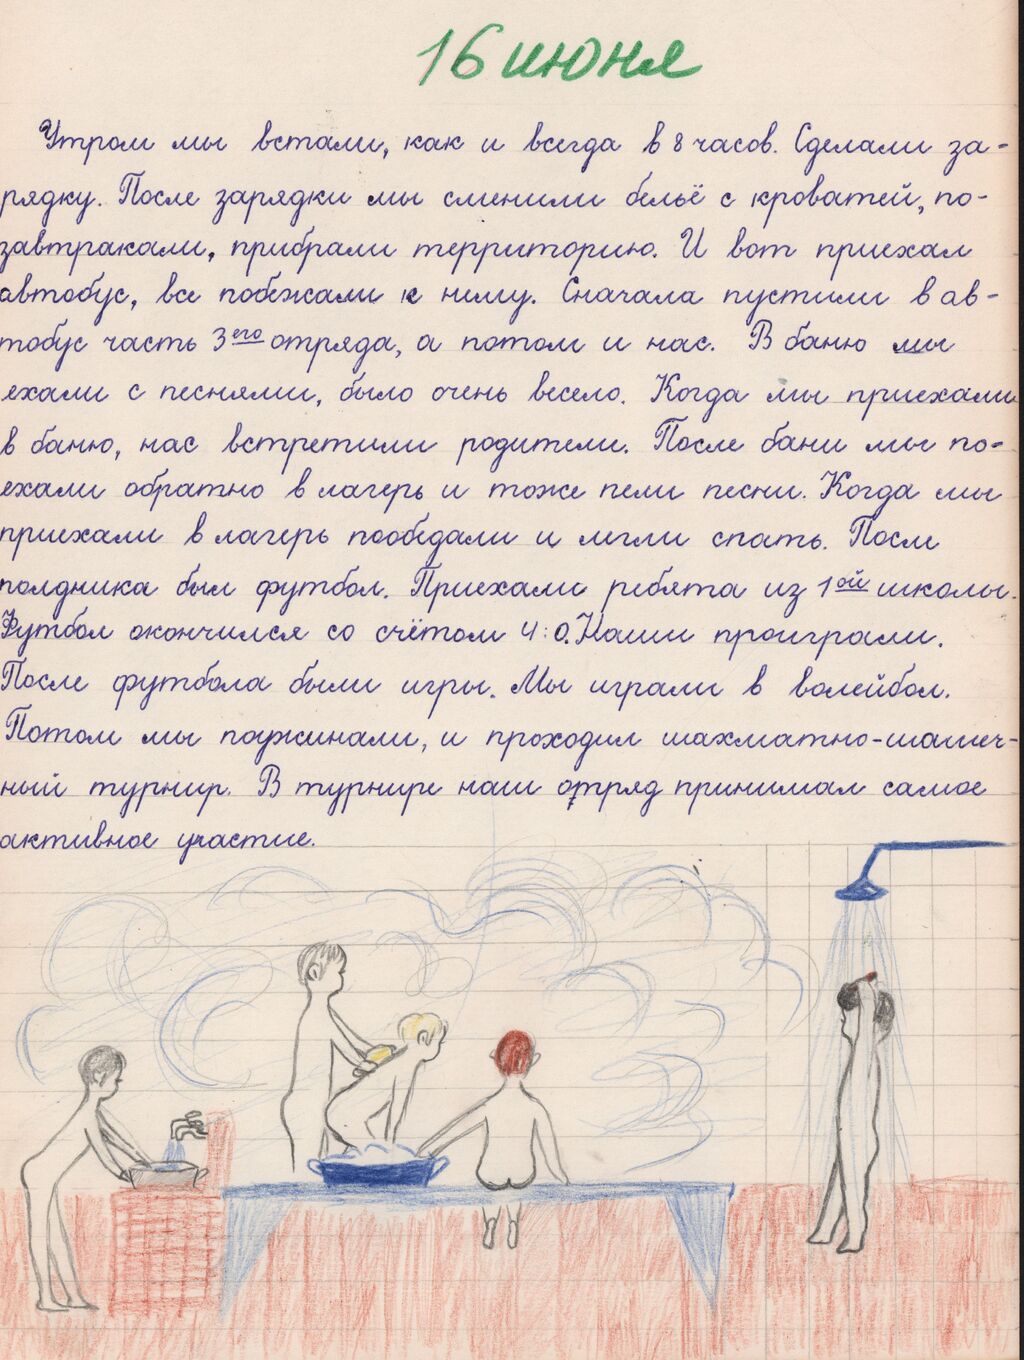 16 июня
Утром мы встали, как и всегда в 8 часов. Сделали за-
рядку. После зарядки мы сменили бельё с кроватей, по-
завтракали, прибрали территорию. И вот приехал
автобус, все побежали к нему. Сначала пустили в ав-
тобус часть 3его отряда, а потом и нас. В баню мы
ехали с песнями, было очень весело. Когда мы приехали
в баню, нас встретили родители. После бани мы по-
ехали обратно в лагерь и тоже пели песни. Когда мы
приехали в лагерь пообедали и легли спать. После
полдника был футбол. Приехали ребята из 1ой школы.
Футбол окончился со счётом 4:0. Наши проиграли.
После футбола были игры. Мы играли в волейбол.
Потом мы поужинали, и проходил шахматно-шашеч-
ный турнир. В турнире наш отряд принимал самое
активное участие.